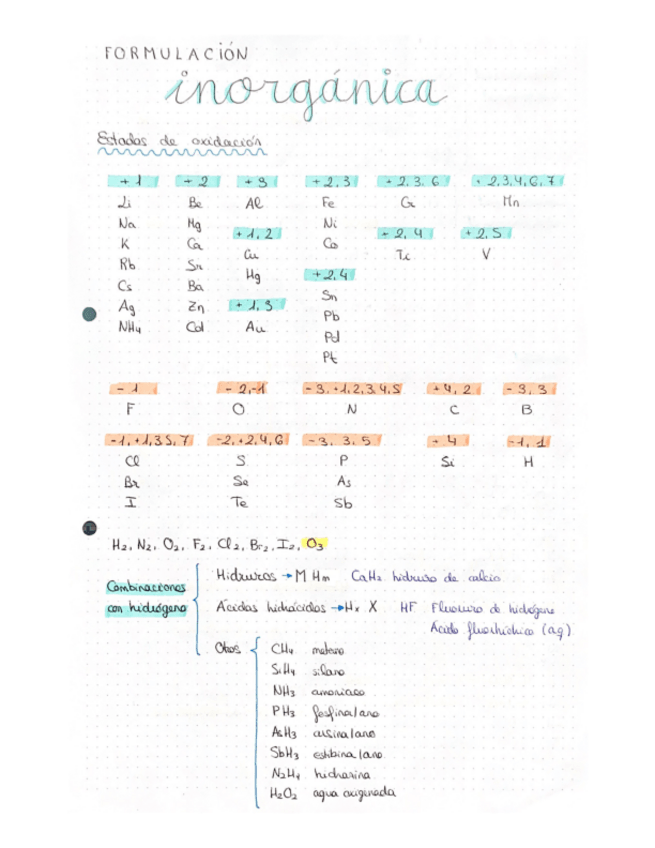 FORMULACIÓN
inorgánica
Estados de oxidación
+1 +2 +3 +2,3 +2.3.6 +2,3,4,6,7
Li Be Al Fe Cr Mn
Na Mg Ni
+1,2 +2,4 +2,5
K Ca Cu Co Tc V
Rb Sr Hg
+2,4
Cs Ba Sn
+1,3
Ag Zn Pb
NH4 Cd Au Pd
Pt
-1 -2,-1 -3.+1,2,3,4,5 +4,2 -3,3
F O N C B
-1,+1,3,5,7 -2,+2,4,6 -3,3,5 +4 -1,1
Cl S P Si H
Br Se As
I Te Sb
H2, N2, O2, F2, Cl2, Br2, I2, O3
Combinaciones
con hidrógeno
Hidruros → M Hm CaH2 hidruro de calcio
Ácidos hidrácidos → Hx X HF Fluoruro de hidrógeno
Ácido fluorhídrico (aq)
Otros
CH4 metano
SiH4 silano
NH3 amoniaco
PH3 fosfina/ano
AsH3 arsina/ano
SbH3 estibina/ano
N2H4 hidrazina
H2O2 agua oxigenada